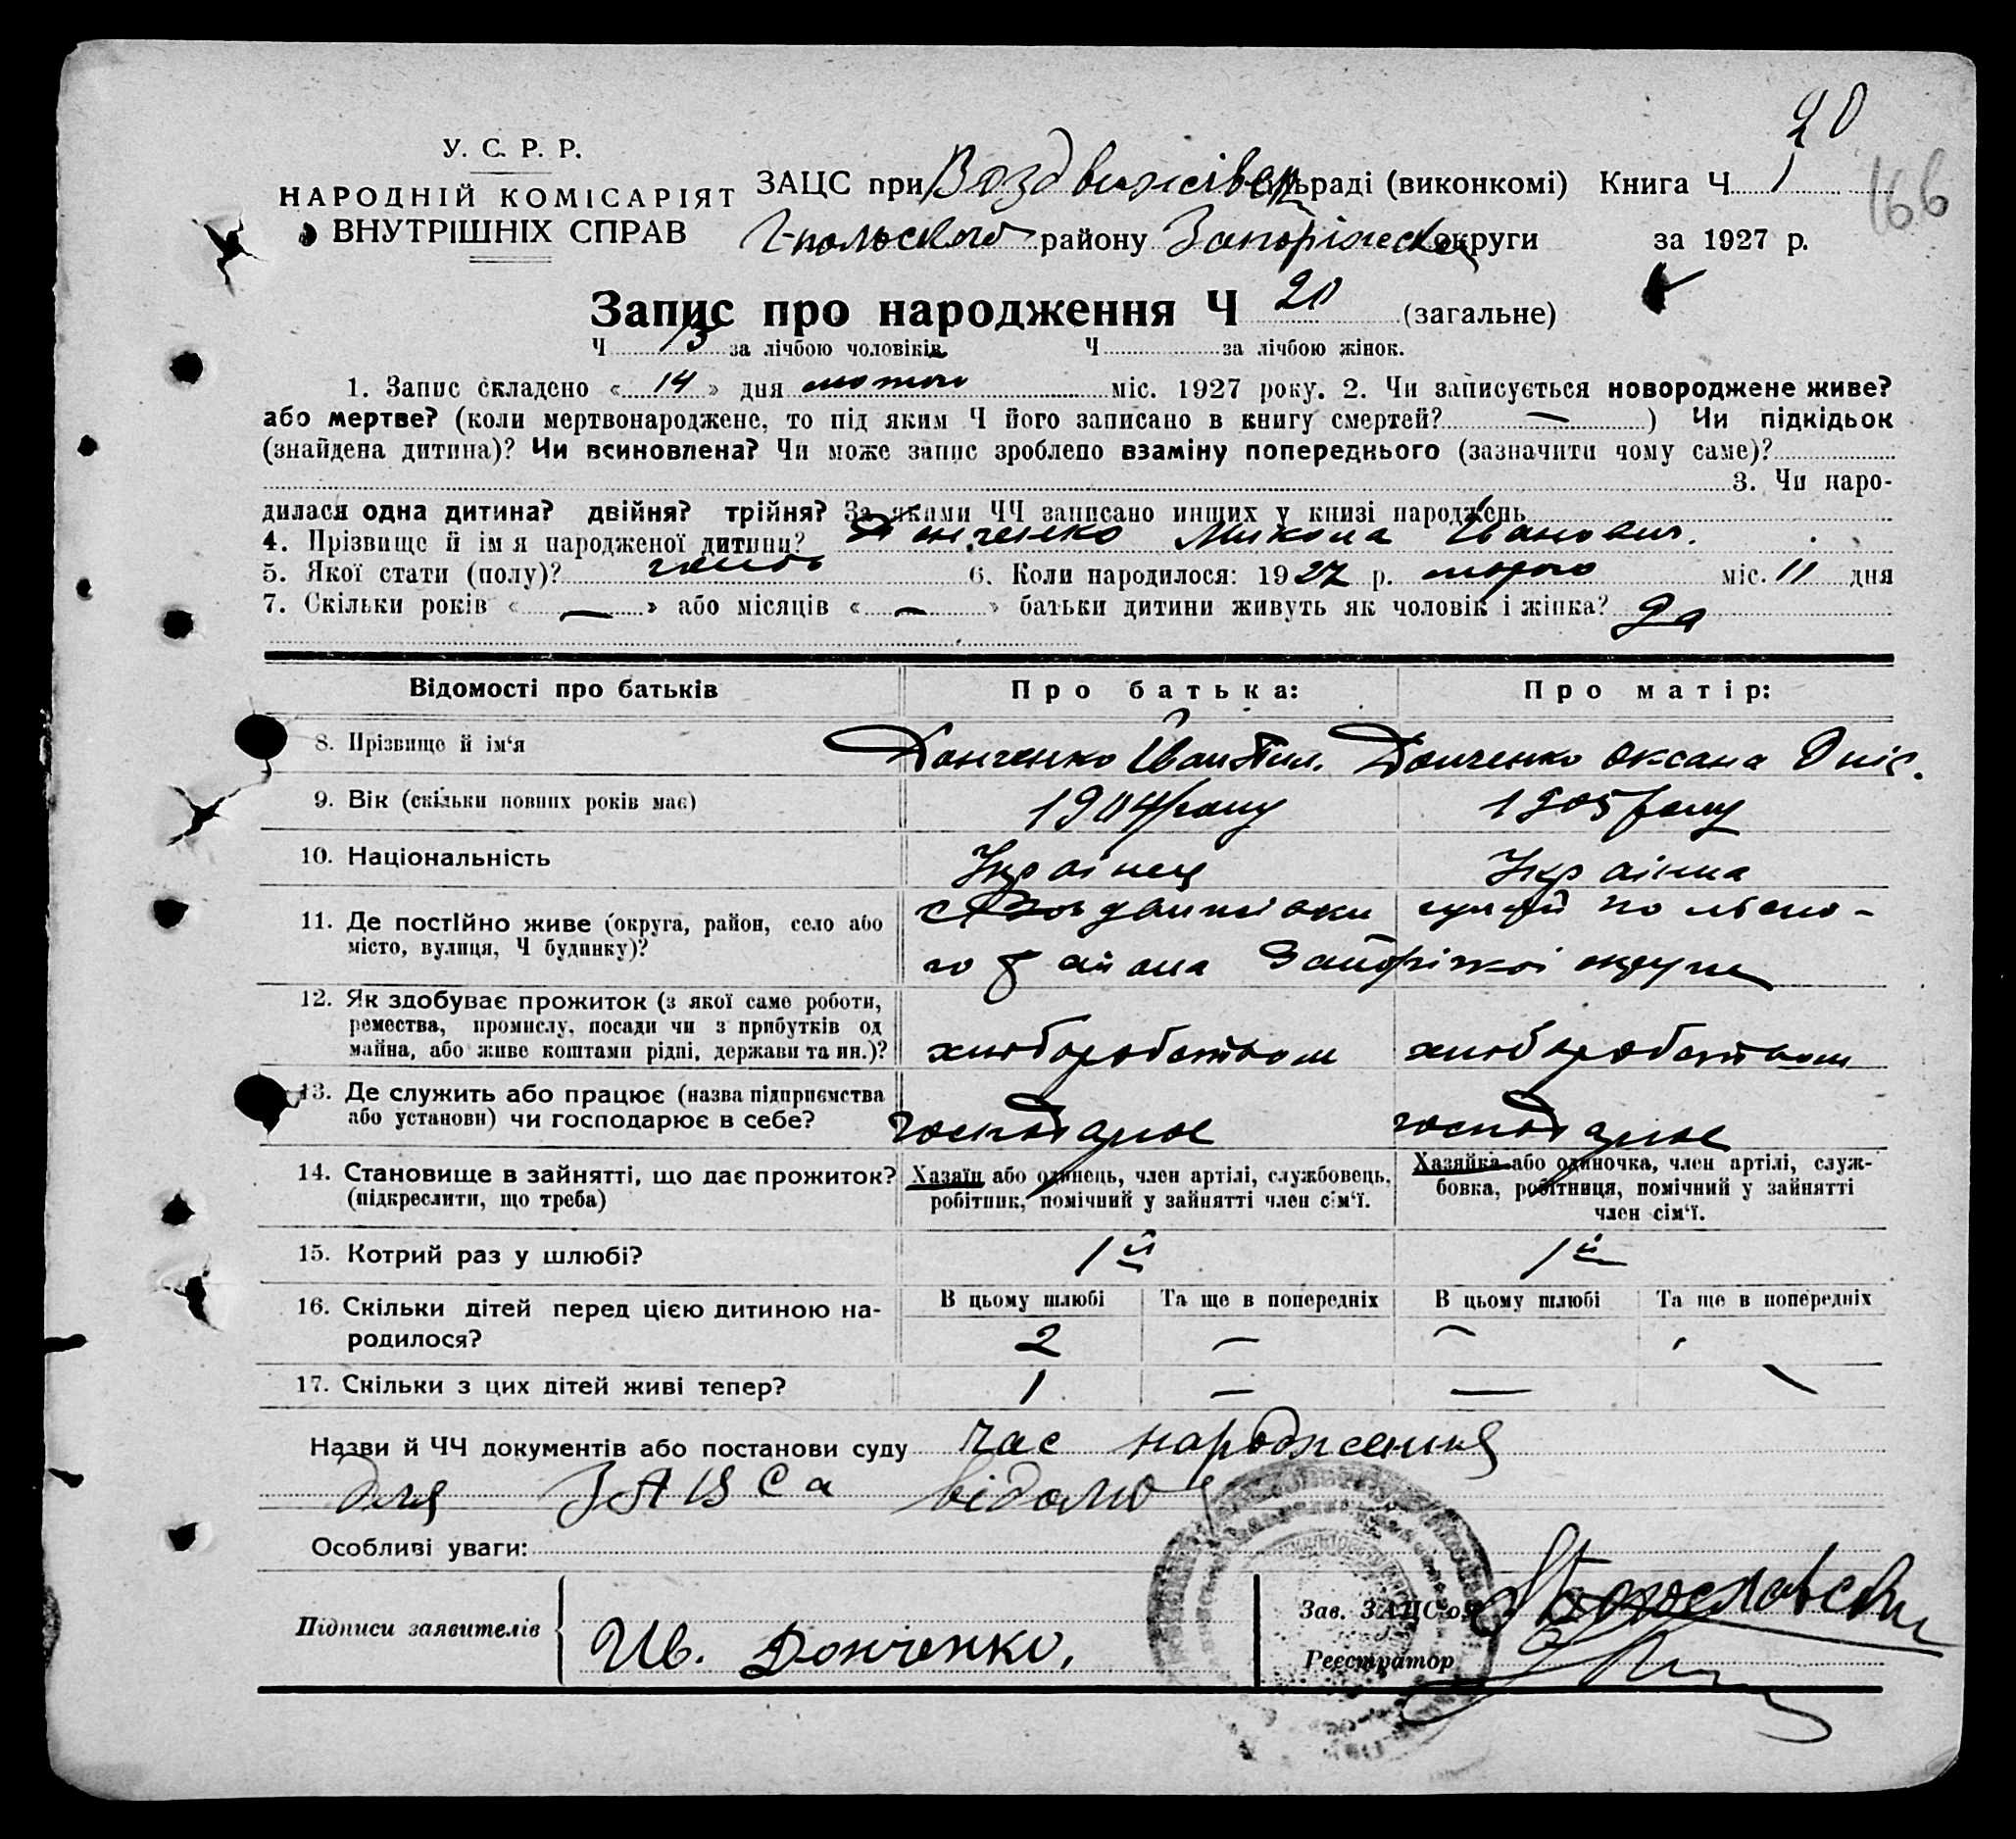 20
У. С. Р. Р.
НАРОДНІЙ КОМІСАРІЯТ
ВНУТРІШНІХ СПРАВ
ЗАЦС при Воздвижсівск сільраді (виконкомі) Книга Ч. 1
166
Г-польского району Запоріжськ округи за 1927 р.
Запис про народження Ч 20 (загальне)
Ч 13 за лічбою чоловіків. Ч за лічбою жінок.
1. Запис складено « 14 » дня лютого міс. 1927 року. 2. Чи записується новороджене живе?
або мертве? (коли мертвонароджене, то під яким Ч його записано в книгу смертей? — ) Чи підкідьок
(знайдена дитина)? Чи всиновлена? Чи може запис зроблено взаміну попереднього (зазначити чому саме)?
3. Чи наро-
дилася одна дитина? двійня? трійня? За якими ЧЧ записано инших у книзі народжень
4. Прізвище й ім я народженої дитини? Донченко Микола Іванович.
5. Якої стати (полу)? 6. Коли народилося: 1927 р. лютого міс. 11 дня
7. Скільки років « — » або місяців « — » батьки дитини живуть як чоловік і жінка? да
Відомості про батьків Про батька: Про матір:
8. Прізвище й ім'я Донченко Іван Пил. Донченко Оксана Оніс.
9. Вік (скільки повних років має) 1904 року 1905 року
10. Національність Українец Українка
11. Де постійно живе (округа, район, село або місто, вулиця, Ч будинку)? гуляй польско-
го района Запоріжкоі округи
12. Як здобуває прожиток (з якої саме роботи, ремества, промислу, посади чи з прибутків од майна, або живе коштами рідні, держави та ин.)? хліборобством хліборобством
13. Де служить або працює (назва підприємства або установи) чи господарює в себе? господарює господарює
14. Становище в зайнятті, що дає прожиток? (підкреслити, що треба) Хазяїн або одинець, член артілі, службовець, робітник, помічний у зайнятті член сім'ї. Хазяйка або одиночка, член артілі, служ-
бовка, робітниця, помічний у зайнятті член сім'ї.
15. Котрий раз у шлюбі? 1й 1й
16. Скільки дітей перед цією дитиною на-
родилося? В цьому шлюбі Та ще в попередніх В цьому шлюбі Та ще в попередніх
2 — —
17. Скільки з цих дітей живі тепер? 1 — —
Назви й ЧЧ документів або постанови суду час народження
для ЗАЦСа відомо
Особливі уваги:
Підписи заявителів Ив. Донченко.
Зав. ЗАЦС'ом
Реєстратор